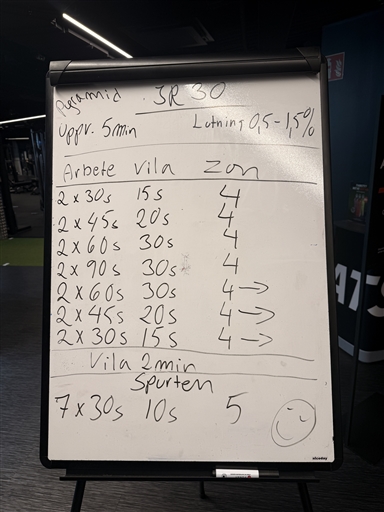 Pyramid 3R 30
Uppv. 5min Lutning 0,5-1,5%
Arbete Vila Zon
2 x 30s 15s 4
2 x 45s 20s 4
2 x 60s 30s 4
2 x 90s 30s 4
2 x 60s 30s 4 →
2 x 45s 20s 4 →
2 x 30s 15s 4 →
Vila 2min
Spurten
7 x 30s 10s 5
ATS